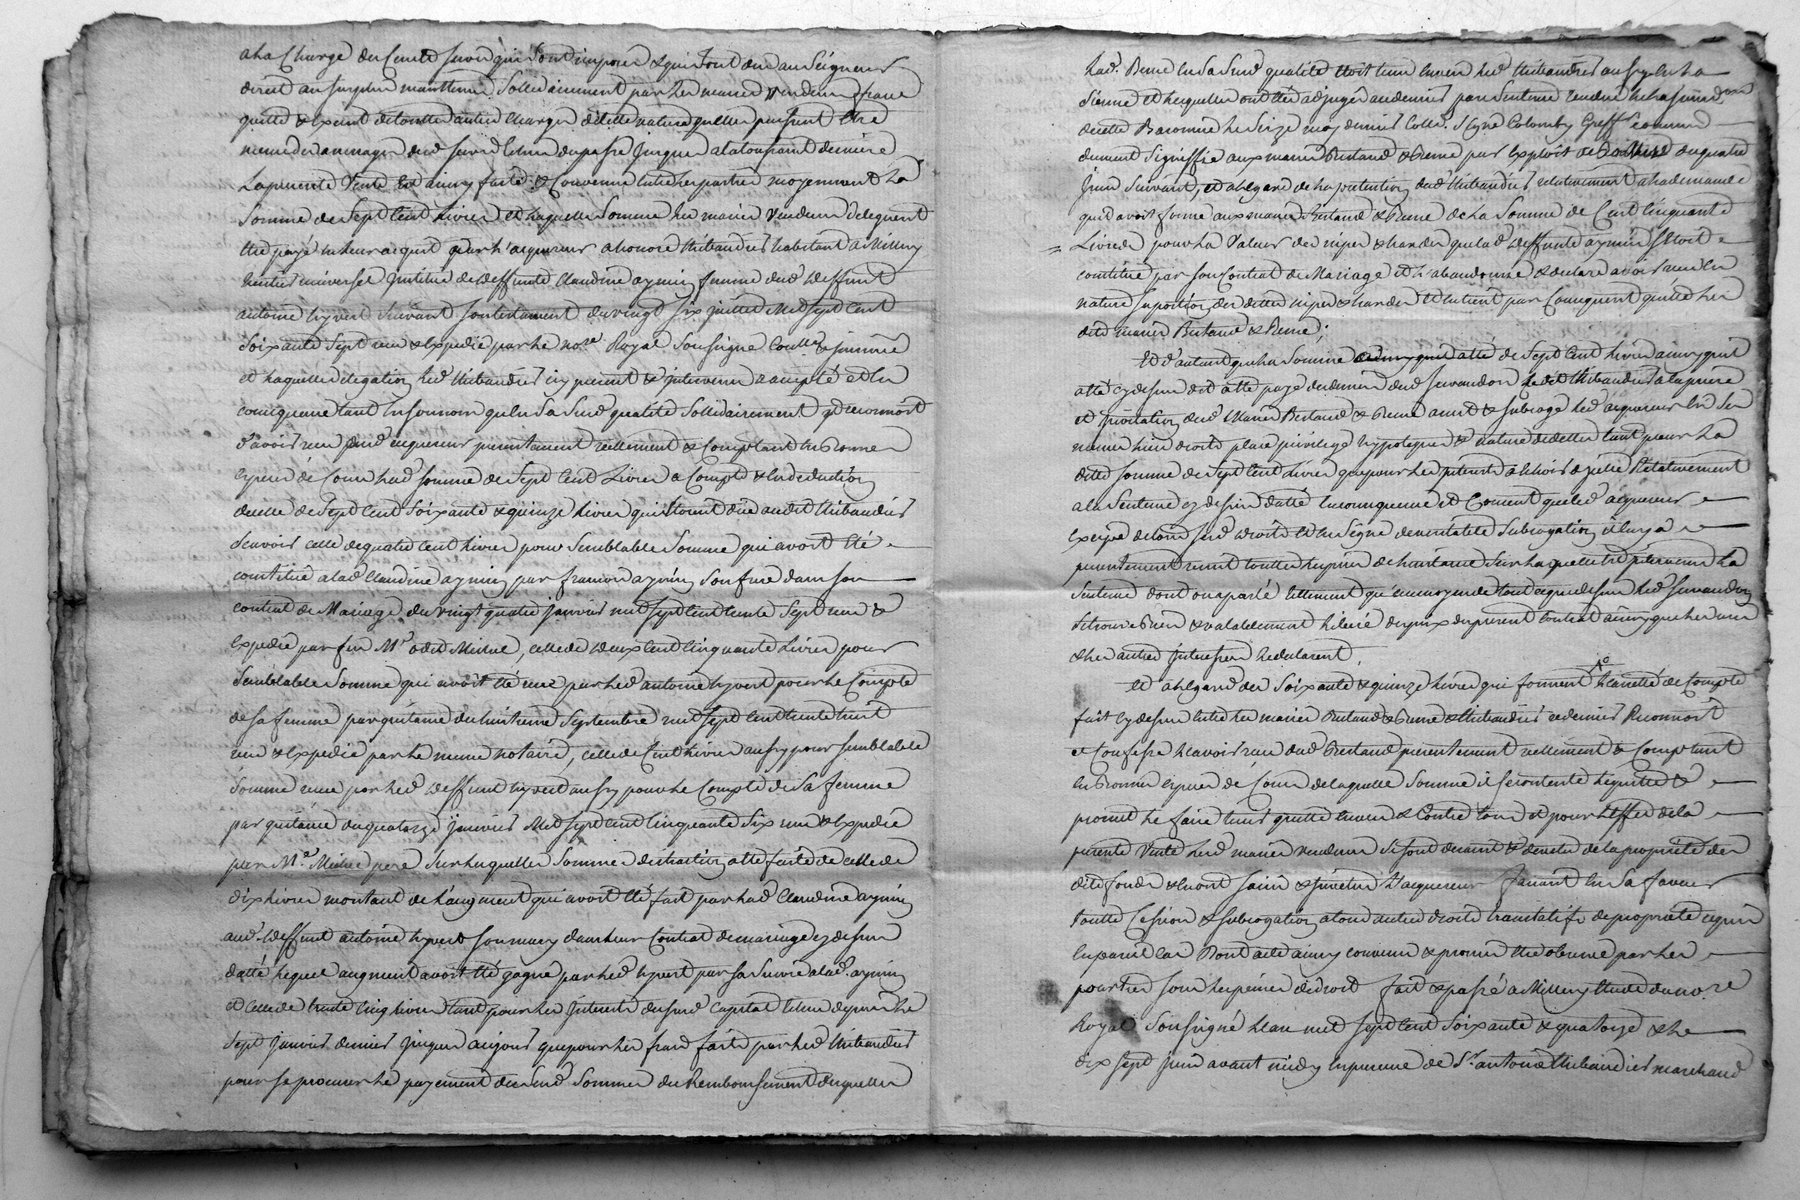 a la Charge du Cens et servis qui sont imposés & qui sont dus au Seigneur
direct au surplus maintenue Solidairement par lesd mariés vendeurs franc
quitte & exempt de toutes autres charges de telle nature qu'elles puissent être
meme des arrerages dud servis et du passé jusques a la toussaint derniere
La presente Vente est ainsy faite & Convenue entre les parties moyennant la
Somme de Sept Cent Livres et laquelle Somme les mariés Vendeurs deleguent
être payé a leur acquit par l'acquereur a honoré thibaudier habitant a Millery
heritier universel institué de deffunte Claudine aymin femme dud deffunt
antoine hyvert suivant son testament du vingt six juillet Mil Sept Cent
Soixante Sept reçu & expedié par le nore Royal Soussigné Conllé &
et laquelle delegation led thibaudier icy present & intervenu a accepté et en
consequence tant en son nom qu'en Sa Susd qualité Solidairement reconnoit
d'avoir reçu dud acquereur presentement reellement & Comptant en bonnes
especes de Cours lad somme de Sept Cent Livres a Compte & en deduction
de celle de Sept Cent Soixante & quinze livres qui etoient dûe audit thibaudier
Scavoir celle de quatre Cent livres pour Semblable Somme qui avoit été
constitué a lad Claudine aymin par françois aymin Son frere dans son
contrat de Mariage du vingt quatre janvier mil sept cent trente Sept reçu &
expedié par feu Me odet Michel, celle de deux Cent Cinquante Livres pour
Semblable Somme qui avoit été reçue par led antoine hyvert pour le Compte
de sa femme par quittance du huitieme Septembre mil sept cent trente huit
reçu & expedié par le meme notaire, celle de Cent livres aussy pour semblable
Somme reçue par led deffunt hyvert aussy pour le Compte de Sa femme
par quittance du quatorze janvier Mil Sept Cent Cinquante Six reçu & expedié
par Me Michel pere Sur lesquelles Sommes distraction a été faite de celle de
dix livres montant de l'augment qui avoit été fait par lad Claudine aymin
aud deffunt antoine hyvert son mary dans leur Contrat de mariage cy dessus
datté lequel augment avoit été gagné par led hyvert par sa Survie a lad aymin
et celle de trente Cinq livres tant pour les Interets dusd Capital echus depuis le
Sept janvier dernier jusques aujourd que pour les frais faits par led thibaudier
pour se procurer le payement desd Sommes du Remboursement desquelles
lad. Berne en Sa Susd qualité étoit tenue envers led thibaudier aussy en la
Sienne et lesquelles ont été adjugés audernier par Sentence rendue en la
de cette Baronnie le Seize may dernier Collé. Signé Colomby Greffr
dument Signiffié aux mariés Bertaud & Berne par exploit de du quatre
Juin Suivant, et a l'egard de la pretention dud thibaudier relativement a la demande
qu'il avoit formé aux mariés Bertaud & Berne de la Somme de Cent Cinquante
Livres pour la Valeur des nipes & hardes que lad deffunte aymin S'etoit
constitué par son Contrat de Mariage il l'abandonne & declare avoir reçu en
nature la portion des dittes nipes & hardes et en tient par Consequent quitte les
dits mariés Bertaud & Berne;
Et d'autant que la Somme de Sept Cent Livres ainsy qu'il
a été cy dessus dit a été payé des deniers dud servandon led thibaudier a la priere
et invitation desd Mariés Bertaud & Berne a mis & subrogé led acquereur en Ses
memes lieu droits place privilege hypoteques & nature de dettes tant pour la
ditte somme de Sept Cent Livres que pour les interets a echoir & ce relativement
a la Sentence cy dessus datté en consequence il Consent que led acquereur
excipe de tous sesd droits et en Signe de veritable Subrogation il luy a
presentement remit toutes les pieces & Sur lesquelles est intervenue la
Sentence dont on a parlé tellement qu'au moyen de tout ce que dessus led servandon
Se trouve bien & valablement liberé du prix du present Contrat ainsy que les uns
& les autres interessés le declarent.
Et a l'egard des Soixante & quinze livres qui forment l'arretté de Compte
fait cy dessus entre les mariés Bertaud & Berne & thibaudier ce dernier Reconnoit
et Confesse l'avoir reçu dud Bertaud presentement reellement & Comptant
en bonnes especes de Cours de laquelle Somme il se contente l'en quitte &
promet le faire tenir quitte envers & Contre tous et pour l'effet de la
presente Vente lesd mariés vendeurs Se sont demis & devetus de la proprieté des
dits fonds & en ont saisi & invetu L'acquereur faisant en Sa faveur
toutte Cession & Subrogation a tous autres droits translatifs de proprieté requis
en pareil cas Dont acte ainsy convenu & promis être observé par les
parties sous les peines de droit fait & passé a Millery Etude du nore
Royal Soussigné L'an mil Sept Cent Soixante & quatorze & le
dix sept juin avant midy en presence de Sr antoine thibaudier marchand